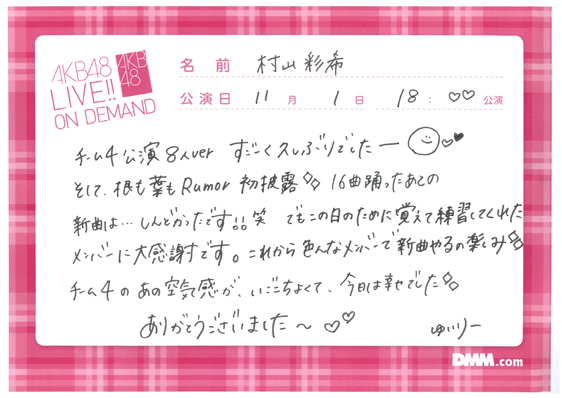 AKB48
LIVE!!
ON DEMAND
AKB
48
名前 村山彩希
公演日 11月 1日 18:♡♡公演
チーム4公演8人ver すごーく久しぶりでしたー
そして、根も葉もRumor 初披露 16曲踊ったあとの
新曲は…しんどかったです!!笑 でもこの日のために覚えて練習してくれた
メンバーに大感謝です。これから色んなメンバーで新曲やるの楽しみ
チーム4のあの空気感が、いごこちよくて、今日は幸せでした
ありがとうございました〜♡♡ ゆいりー
DMM.com